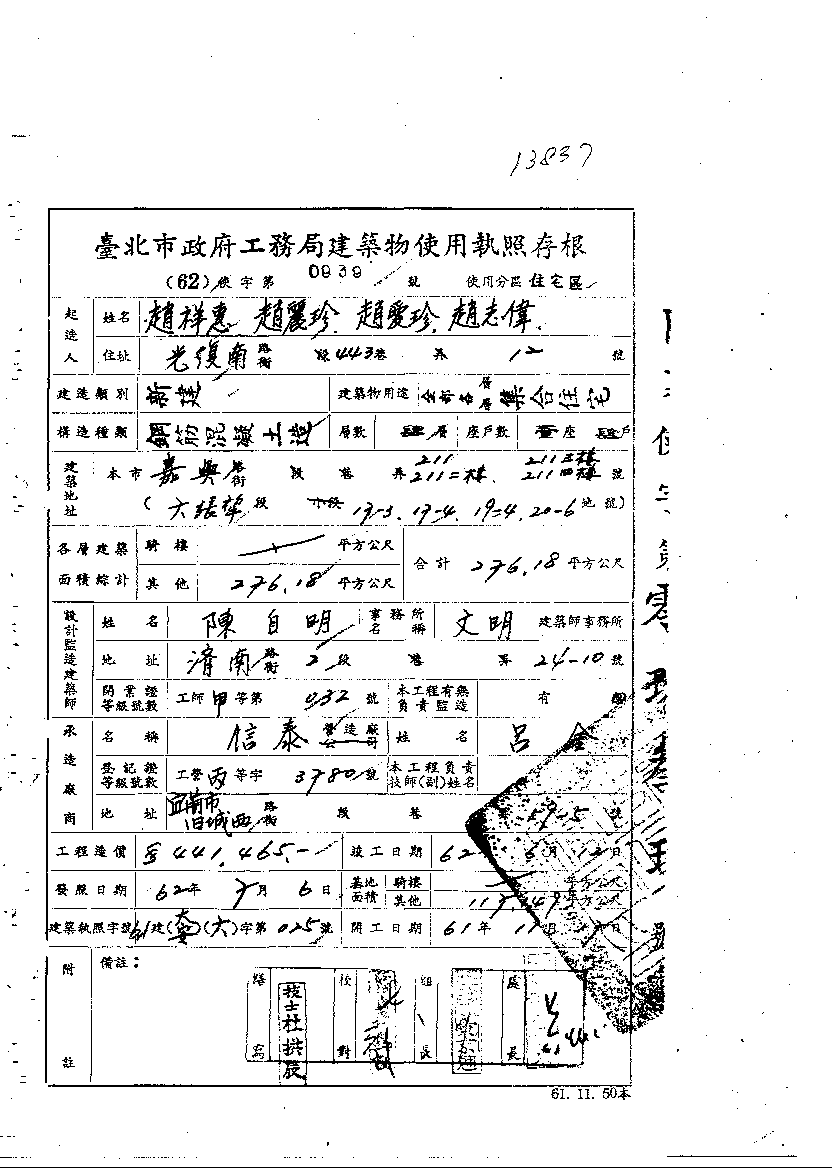 13837
臺北市政府工務局建築物使用執照存根
(62)使字第 0939 號 使用分區 住宅區
起造人 姓名 趙祥惠 趙麗珍 趙愛珍 趙志偉
住址 光復南 路街 段 443巷 弄 12 號
建造類別 新建 建築物用途 全部各層 集合住宅
構造種類 鋼筋混凝土造 層數 層 座戶數 座 戶
建築地址 本市 嘉興 路街 段 巷 弄 211 211二棟 211三棟 211四棟 號
(六張犂段 小段 19-4 20-6 地號)
各層建築面積綜計 騎樓 平方公尺 合計 276.18 平方公尺
其他 276.18 平方公尺
設計監造建築師 姓名 陳自明 事務所名稱 文明 建築師事務所
地址 濟南 路街 2 段 巷 弄 24-10 號
開業證等級號數 工師 甲 等第 032 號 本工程有無負責監造 有
承造廠商 名稱 信泰 營造廠公司 姓名 呂金
登記證等級號數 工營 丙 等字 3780 號 本工程負責技師(副)姓名
地址 舊城西 路街 段 巷 59-5 號
工程造價 441,465.- 竣工日期 62 6月 12日
發照日期 62年 7月 6日 基地面積 騎樓 平方公尺
其他 平方公尺
建築執照字號 61建( )(六)字第 025 號 開工日期 61年 11月 日
附註 備註：
繕寫 校對 組長 處長
61. 11. 50本